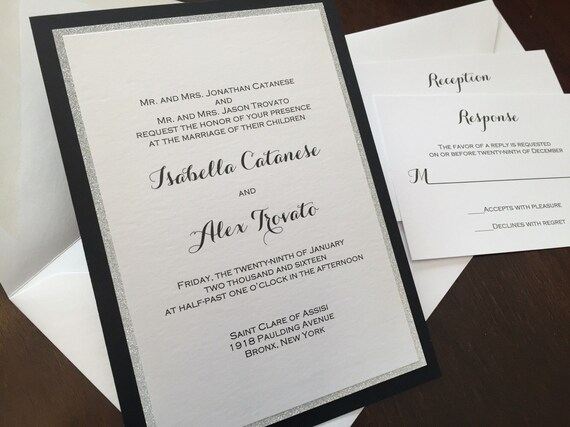 Mr. and Mrs. Jonathan Catanese
and
Mr. and Mrs. Jason Trovato
request the honor of your presence
at the marriage of their children
Isabella Catanese
and
Alex Trovato
Friday, the twenty-ninth of January
two thousand and sixteen
at half-past one o'clock in the afternoon
Saint Clare of Assisi
1918 Paulding Avenue
Bronx, New York
Reception
Response
The favor of a reply is requested
on or before twenty-ninth of December
M
Accepts with pleasure
Declines with regret